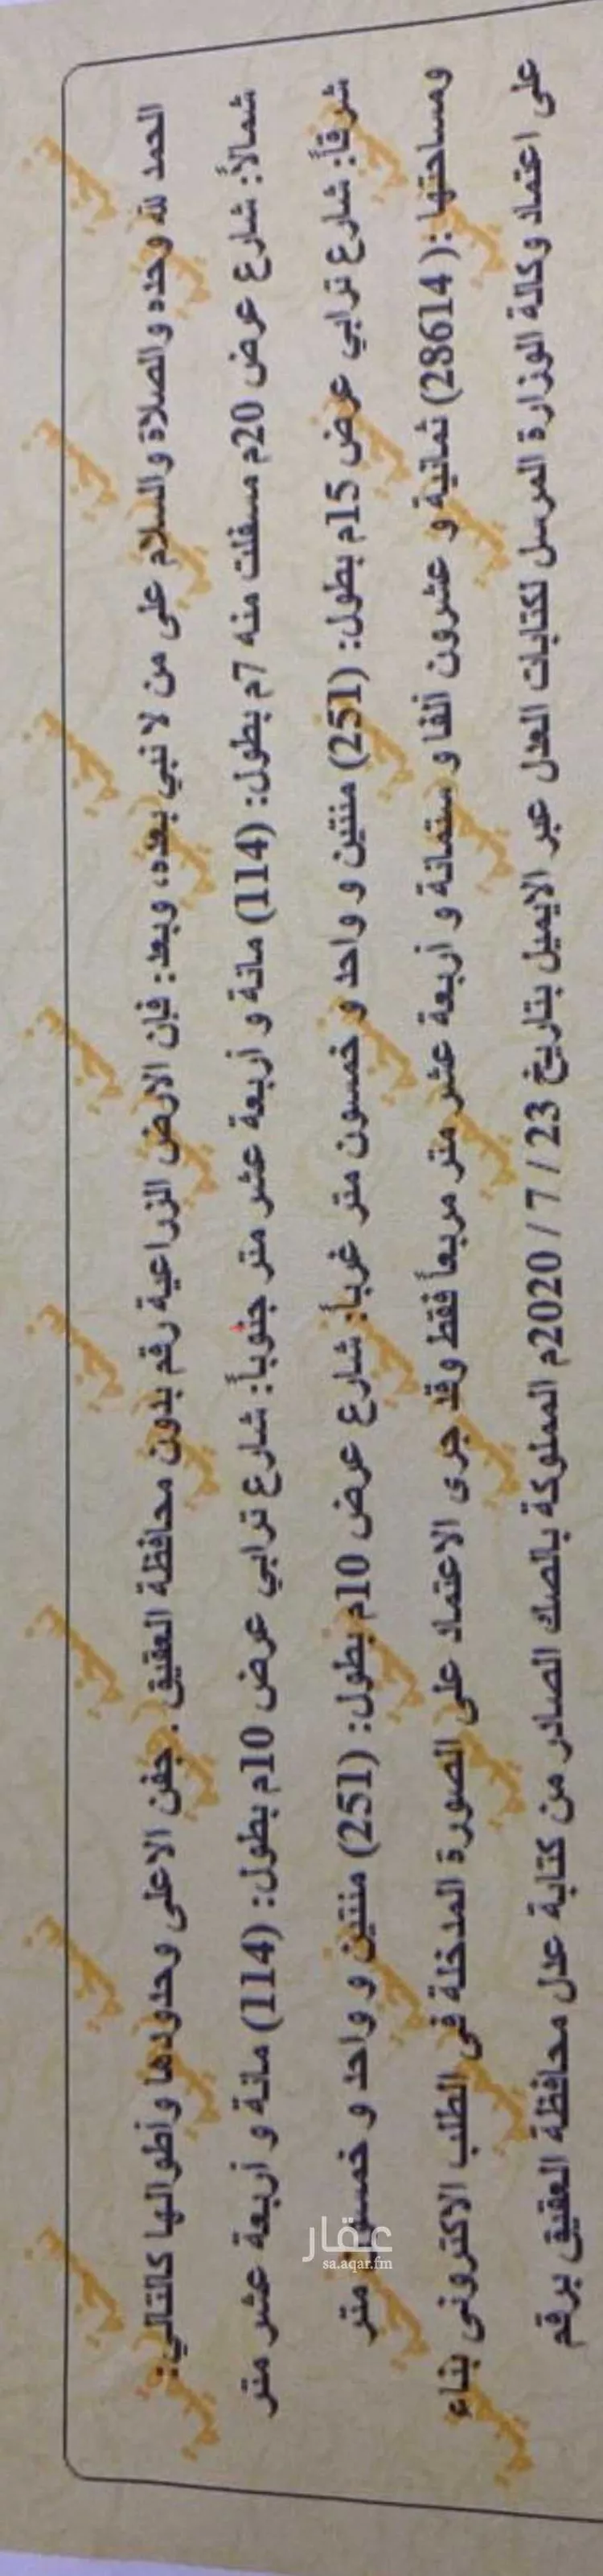 الحمد لله وحده والصلاة والسلام على من لا نبي بعده، وبعد: فإن الارض الزراعية رقم بدون محافظة العقيق . جفن الاعلى وحدودها وأطوالها كالتالي:
شمالاً: شارع عرض 20م مسفلت منه 7م بطول: (114) مائة و أربعة عشر متر جنوباً: شارع ترابي عرض 10م بطول: (114) مائة و أربعة عشر متر
شرقاً: شارع ترابي عرض 15م بطول: (251) مئتين و واحد و خمسون متر غرباً: شارع عرض 10م بطول: (251) مئتين و واحد و خمسون متر
ومساحتها :( 28614) ثمانية و عشرون ألفا و ستمائة و أربعة عشر متر مربعاً فقط وقد جرى الاعتماد على الصورة المدخلة في الطلب الاكتروني بناء
على اعتماد وكالة الوزارة المرسل لكتابات العدل عبر الايميل بتاريخ 23 / 7 / 2020م المملوكة بالصك الصادر من كتابة عدل محافظة العقيق برقم
عقار
sa.aqar.fm